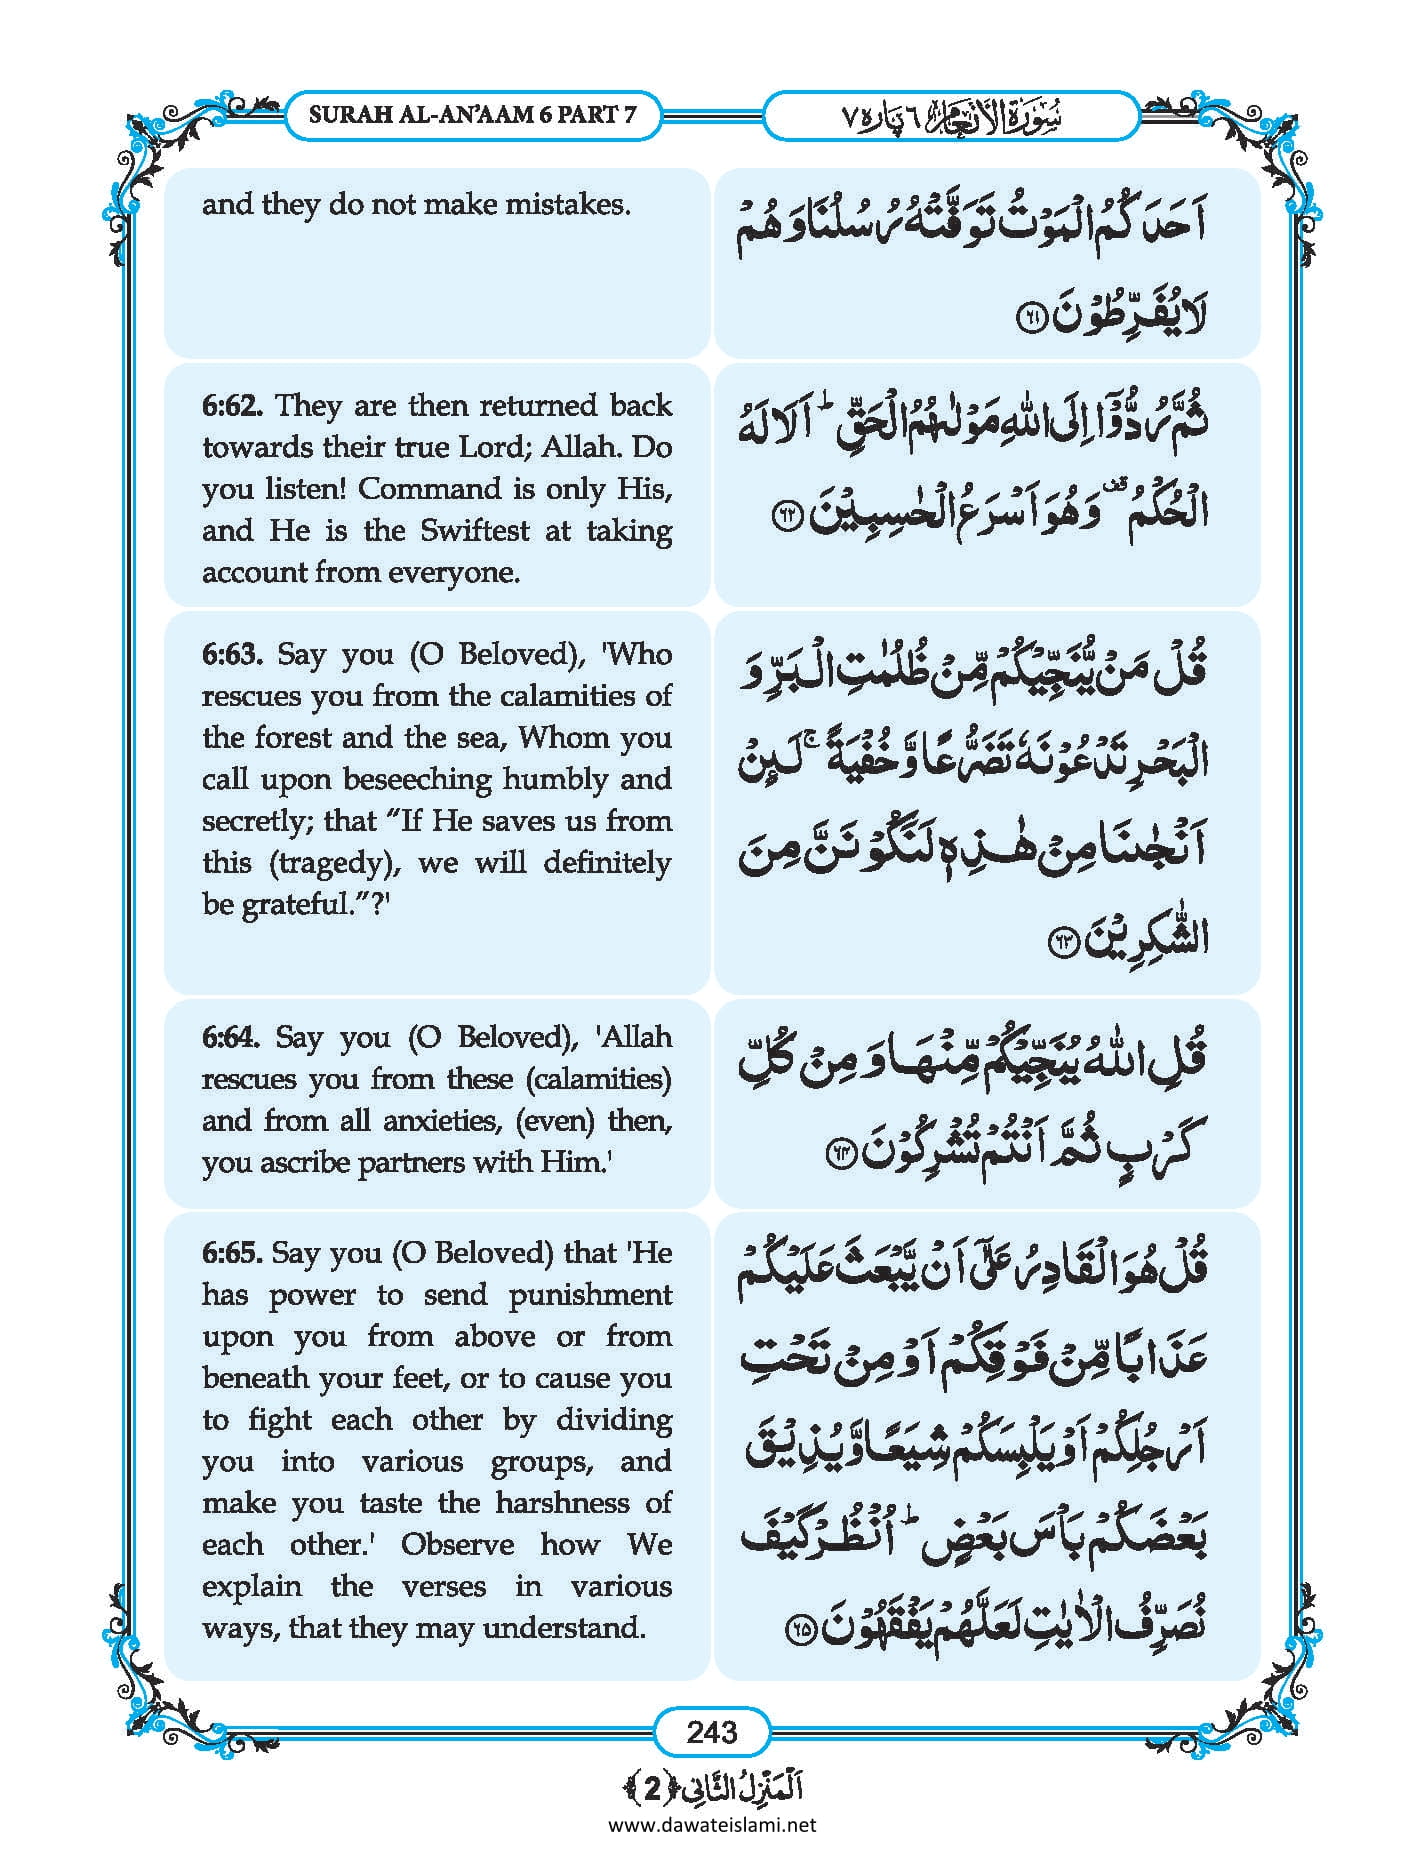 SURAH AL-AN'AAM 6 PART 7
سُوْرَةُ الْاَنْعَام ٦ پارہ ٧
and they do not make mistakes.
اَحَدَكُمُ الْمَوْتُ تَوَفَّتْهُ رُسُلُنَا وَ هُمْ
لَا یُفَرِّطُوْنَ ﴿۶۱﴾
6:62. They are then returned back
towards their true Lord; Allah. Do
you listen! Command is only His,
and He is the Swiftest at taking
account from everyone.
ثُمَّ رُدُّوْۤا اِلَى اللّٰهِ مَوْلٰىهُمُ الْحَقِّ ؕ اَلَا لَهُ
الْحُكْمُ ۫ وَ هُوَ اَسْرَعُ الْحٰسِبِیْنَ ﴿۶۲﴾
6:63. Say you (O Beloved), 'Who
rescues you from the calamities of
the forest and the sea, Whom you
call upon beseeching humbly and
secretly; that "If He saves us from
this (tragedy), we will definitely
be grateful."?'
قُلْ مَنْ یُّنَجِّیْكُمْ مِّنْ ظُلُمٰتِ الْبَرِّ وَ
الْبَحْرِ تَدْعُوْنَهٗ تَضَرُّعًا وَّ خُفْیَةً ۚ لَىِٕنْ
اَنْجٰىنَا مِنْ هٰذِهٖ لَنَكُوْنَنَّ مِنَ
الشّٰكِرِیْنَ ﴿۶۳﴾
6:64. Say you (O Beloved), 'Allah
rescues you from these (calamities)
and from all anxieties, (even) then,
you ascribe partners with Him.'
قُلِ اللّٰهُ یُنَجِّیْكُمْ مِّنْهَا وَ مِنْ كُلِّ
كَرْبٍ ثُمَّ اَنْتُمْ تُشْرِكُوْنَ ﴿۶۴﴾
6:65. Say you (O Beloved) that 'He
has power to send punishment
upon you from above or from
beneath your feet, or to cause you
to fight each other by dividing
you into various groups, and
make you taste the harshness of
each other.' Observe how We
explain the verses in various
ways, that they may understand.
قُلْ هُوَ الْقَادِرُ عَلٰۤى اَنْ یَّبْعَثَ عَلَیْكُمْ
عَذَابًا مِّنْ فَوْقِكُمْ اَوْ مِنْ تَحْتِ
اَرْجُلِكُمْ اَوْ یَلْبِسَكُمْ شِیَعًا وَّ یُذِیْقَ
بَعْضَكُمْ بَاْسَ بَعْضٍ ؕ اُنْظُرْ كَیْفَ
نُصَرِّفُ الْاٰیٰتِ لَعَلَّهُمْ یَفْقَهُوْنَ ﴿۶۵﴾
243
اَلْمَنْزِلُ الثَّانِی ﴿2﴾
www.dawateislami.net